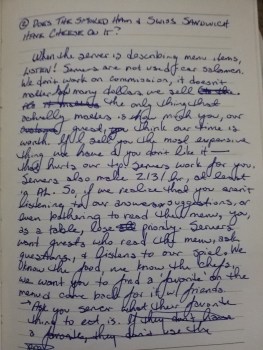 ② DOES THE SMOKED HAM & SWISS SANDWICH
HAVE CHEESE ON IT?
When the server is describing menu items,
LISTEN! Servers are not used car salesmen.
We don't work on commission, it doesn't
matter how many dollars we sell
the only thing that
actually matters is how much you, our
guest, think our time is
worth. If I sell you the most expensive
thing we have & you don't like it -
that hurts our tip! Servers work for you.
Servers also make 2.13/hr, at least
in AL. So, if we realize that you aren't
listening to our answers, suggestions, or
even bothering to read the menu, you,
as a table, lose priority. Servers
want guests who read the menu, ask
questions, & listens to our spiel. We
know the food, we know the chefs,
we want you to find a favorite on the
menu & come back for it w/ friends.
Ask your server what their favorite
thing to eat is. If they don't have
a favorite, they don't use the